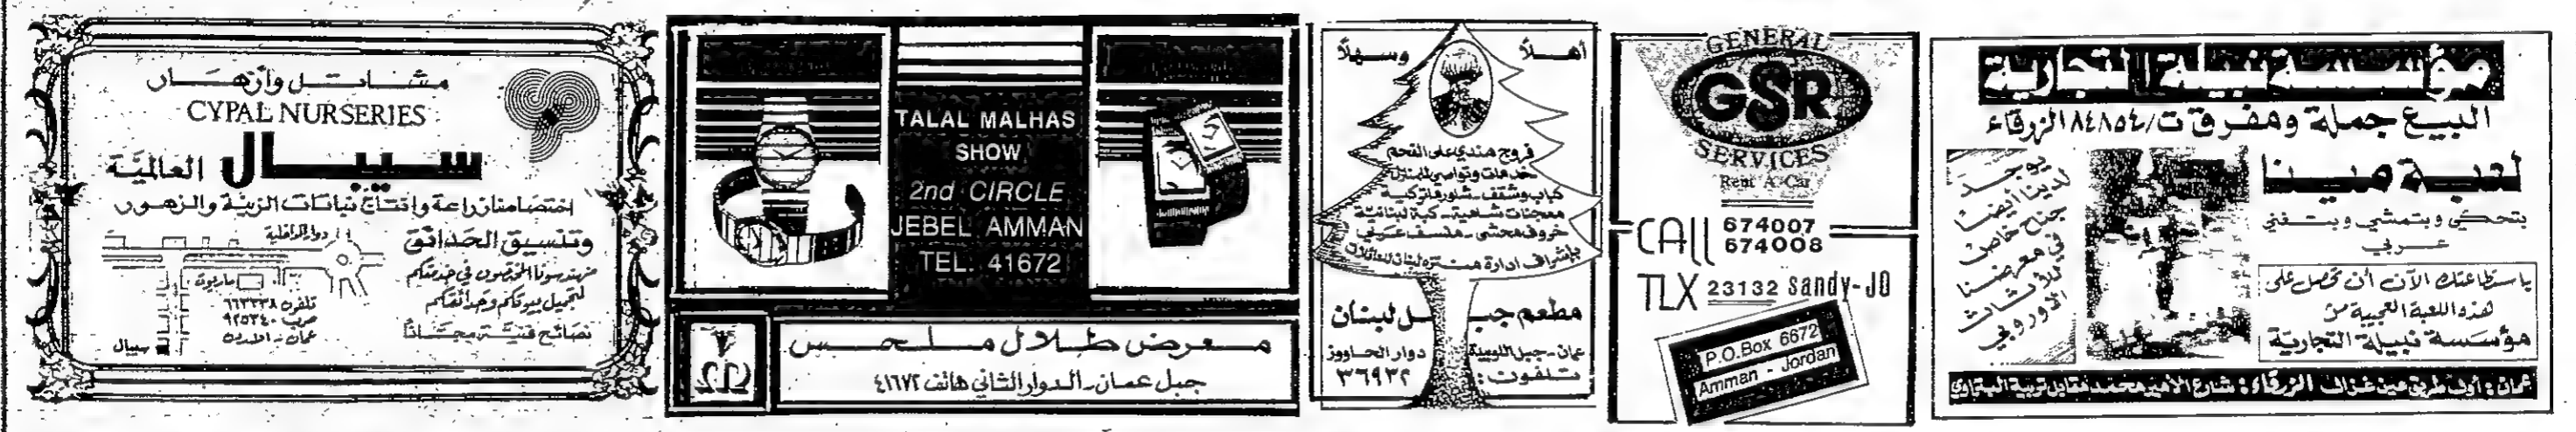 مشاتل وأزهار
CYPAL NURSERIES
سيبال العالمية
اختصاصنا زراعة وانتاج نباتات الزينة والزهور
وتنسيق الحدائق
دوار الداخلية
مهندسونا المختصون في خدمتكم
لتجميل بيوتكم وحدائقكم
نصائح فنية مجانا
تلفون ٦٦٣٣٣٨
ص.ب ٩٢٥٣٤٠
عمان - الاردن
سيبال
TALAL MALHAS
SHOW
2nd CIRCLE
JEBEL AMMAN
TEL. 41672
معرض طلال ملحس
جبل عمان - الدوار الثاني هاتف ٤١٦٧٢
أهلاً وسهلاً
فروج هندي على الفحم
خدمات وتواصي للمنزل
كباب وشقف - شاورما تركية
معجنات شامية - كبة لبنانية
خروف محشي - منسف عربي
بإشراف ادارة منتزه لبنان للعائلات
مطعم جبل لبنان
عمان - جبل اللويبدة دوار الحاووز
تلفون: ٣٦٩٣٢
GENERAL
GSR
SERVICES
Rent-A-Car
CALL 674007
674008
TLX 23132 Sandy-JO
P.O.Box 6672
Amman - Jordan
مؤسسة نبيلة التجارية
البيع جملة ومفرق ت/٨٤٨٥٤ الزرقاء
لعبة مينا
بتحكي وبتمشي وبتغني
عربي
باستطاعتك الآن أن تحصل على
هذه اللعبة العجيبة من
مؤسسة نبيلة التجارية
يوجد
لدينا أيضا
جناح خاص
في معرضنا
للأثاث
الاوروبي
عمان: أول طريق عين غزال الزرقاء: شارع الأمير محمد مقابل تربية البتراوي